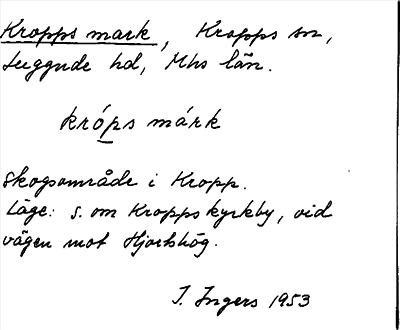 Kropps mark, Kropps sn,
Luggude hd, Mhs län.
króps márk
Skogsområde i Kropp.
Läge: s. om Kroppskyrkby, vid
vägen mot Hjortshög.
I. Ingers 1953